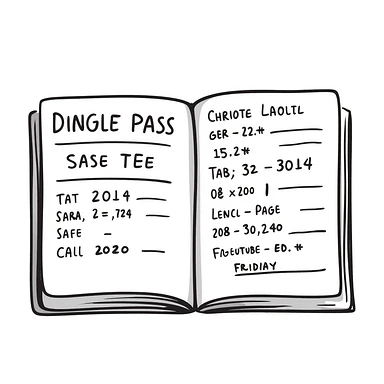 DINGLE PASS
SASE TEE
TAT 2014
SARA, 2=,724
SAFE -
CALL 2020
CHRIOTE LAOLTL
GER - 22.#
15.2#
TAB; 32 - 3014
x200 1
LENCL - PAGE
208 - 30,240
FRGEUTUBE - ED. #
FRIDIAY